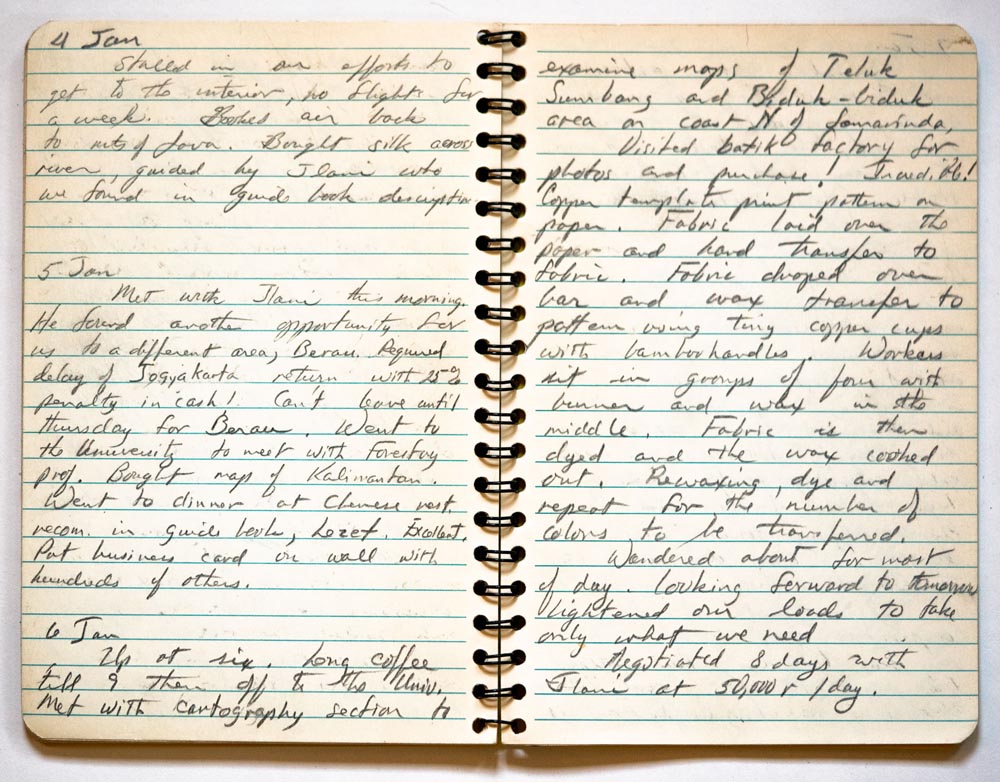 4 Jan
Stalled in our efforts to
get to the interior, no flights for
a week. Bookes air back
to rest of Java. Bought silk across
river, guided by Jlani who
we found in guide book description
5 Jan
Met with Jlani this morning.
He found another opportunity for
us to a different area, Berau. Required
delay of Jogyakarta return with 25%
penalty in cash! Can't leave until
thursday for Berau. Went to
the University to meet with Forestry
prof. Bought map of Kalimantan.
Went to dinner at Chinese rest.
recom. in guide book, Lezet. Excellent.
Put business card on wall with
hundreds of others.
6 Jan
Up at six. Long coffee
till 9 then off to the Univ.
Met with cartography section to
examine maps of Teluk
Sumbang and Biduk-biduk
area on coast N of Samarinda.
Visited batik factory for
photos and purchase! Incredible!
Copper template print pattern on
paper. Fabric laid over the
paper and hand transfer to
fabric. Fabric draped over
bar and wax transfer to
pattern using tiny copper cups
with bamboo handles. Workers
sit in groups of four with
burner and wax in the
middle. Fabric is then
dyed and the wax cooked
out. Rewaxing, dye and
repeat for the number of
colors to be transferred.
Wandered about for most
of day. Looking forward to tomorrow
Lightened our loads to take
only what we need
Negotiated 8 days with
Jlani at 50,000r /day.